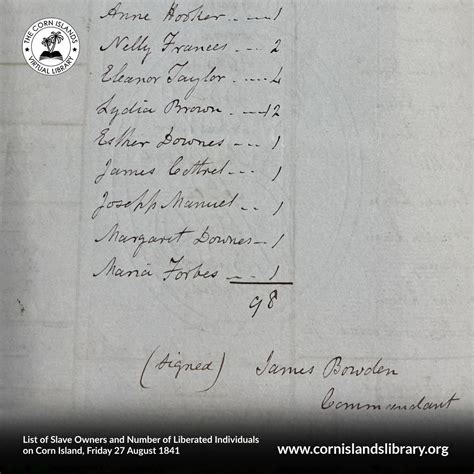 THE CORN ISLANDS
VIRTUAL LIBRARY
Anne Hooker --- 1
Nelly Frances -- 2
Eleanor Taylor --- 4
Lydia Brown --- 12
Esther Downes --- 1
James Cottrel --- 1
Joseph Manuel --- 1
Margaret Downes -- 1
Maria Forbes --- 1
98
(Signed) James Bowden
Commandant
List of Slave Owners and Number of Liberated Individuals
on Corn Island, Friday 27 August 1841
www.cornislandslibrary.org